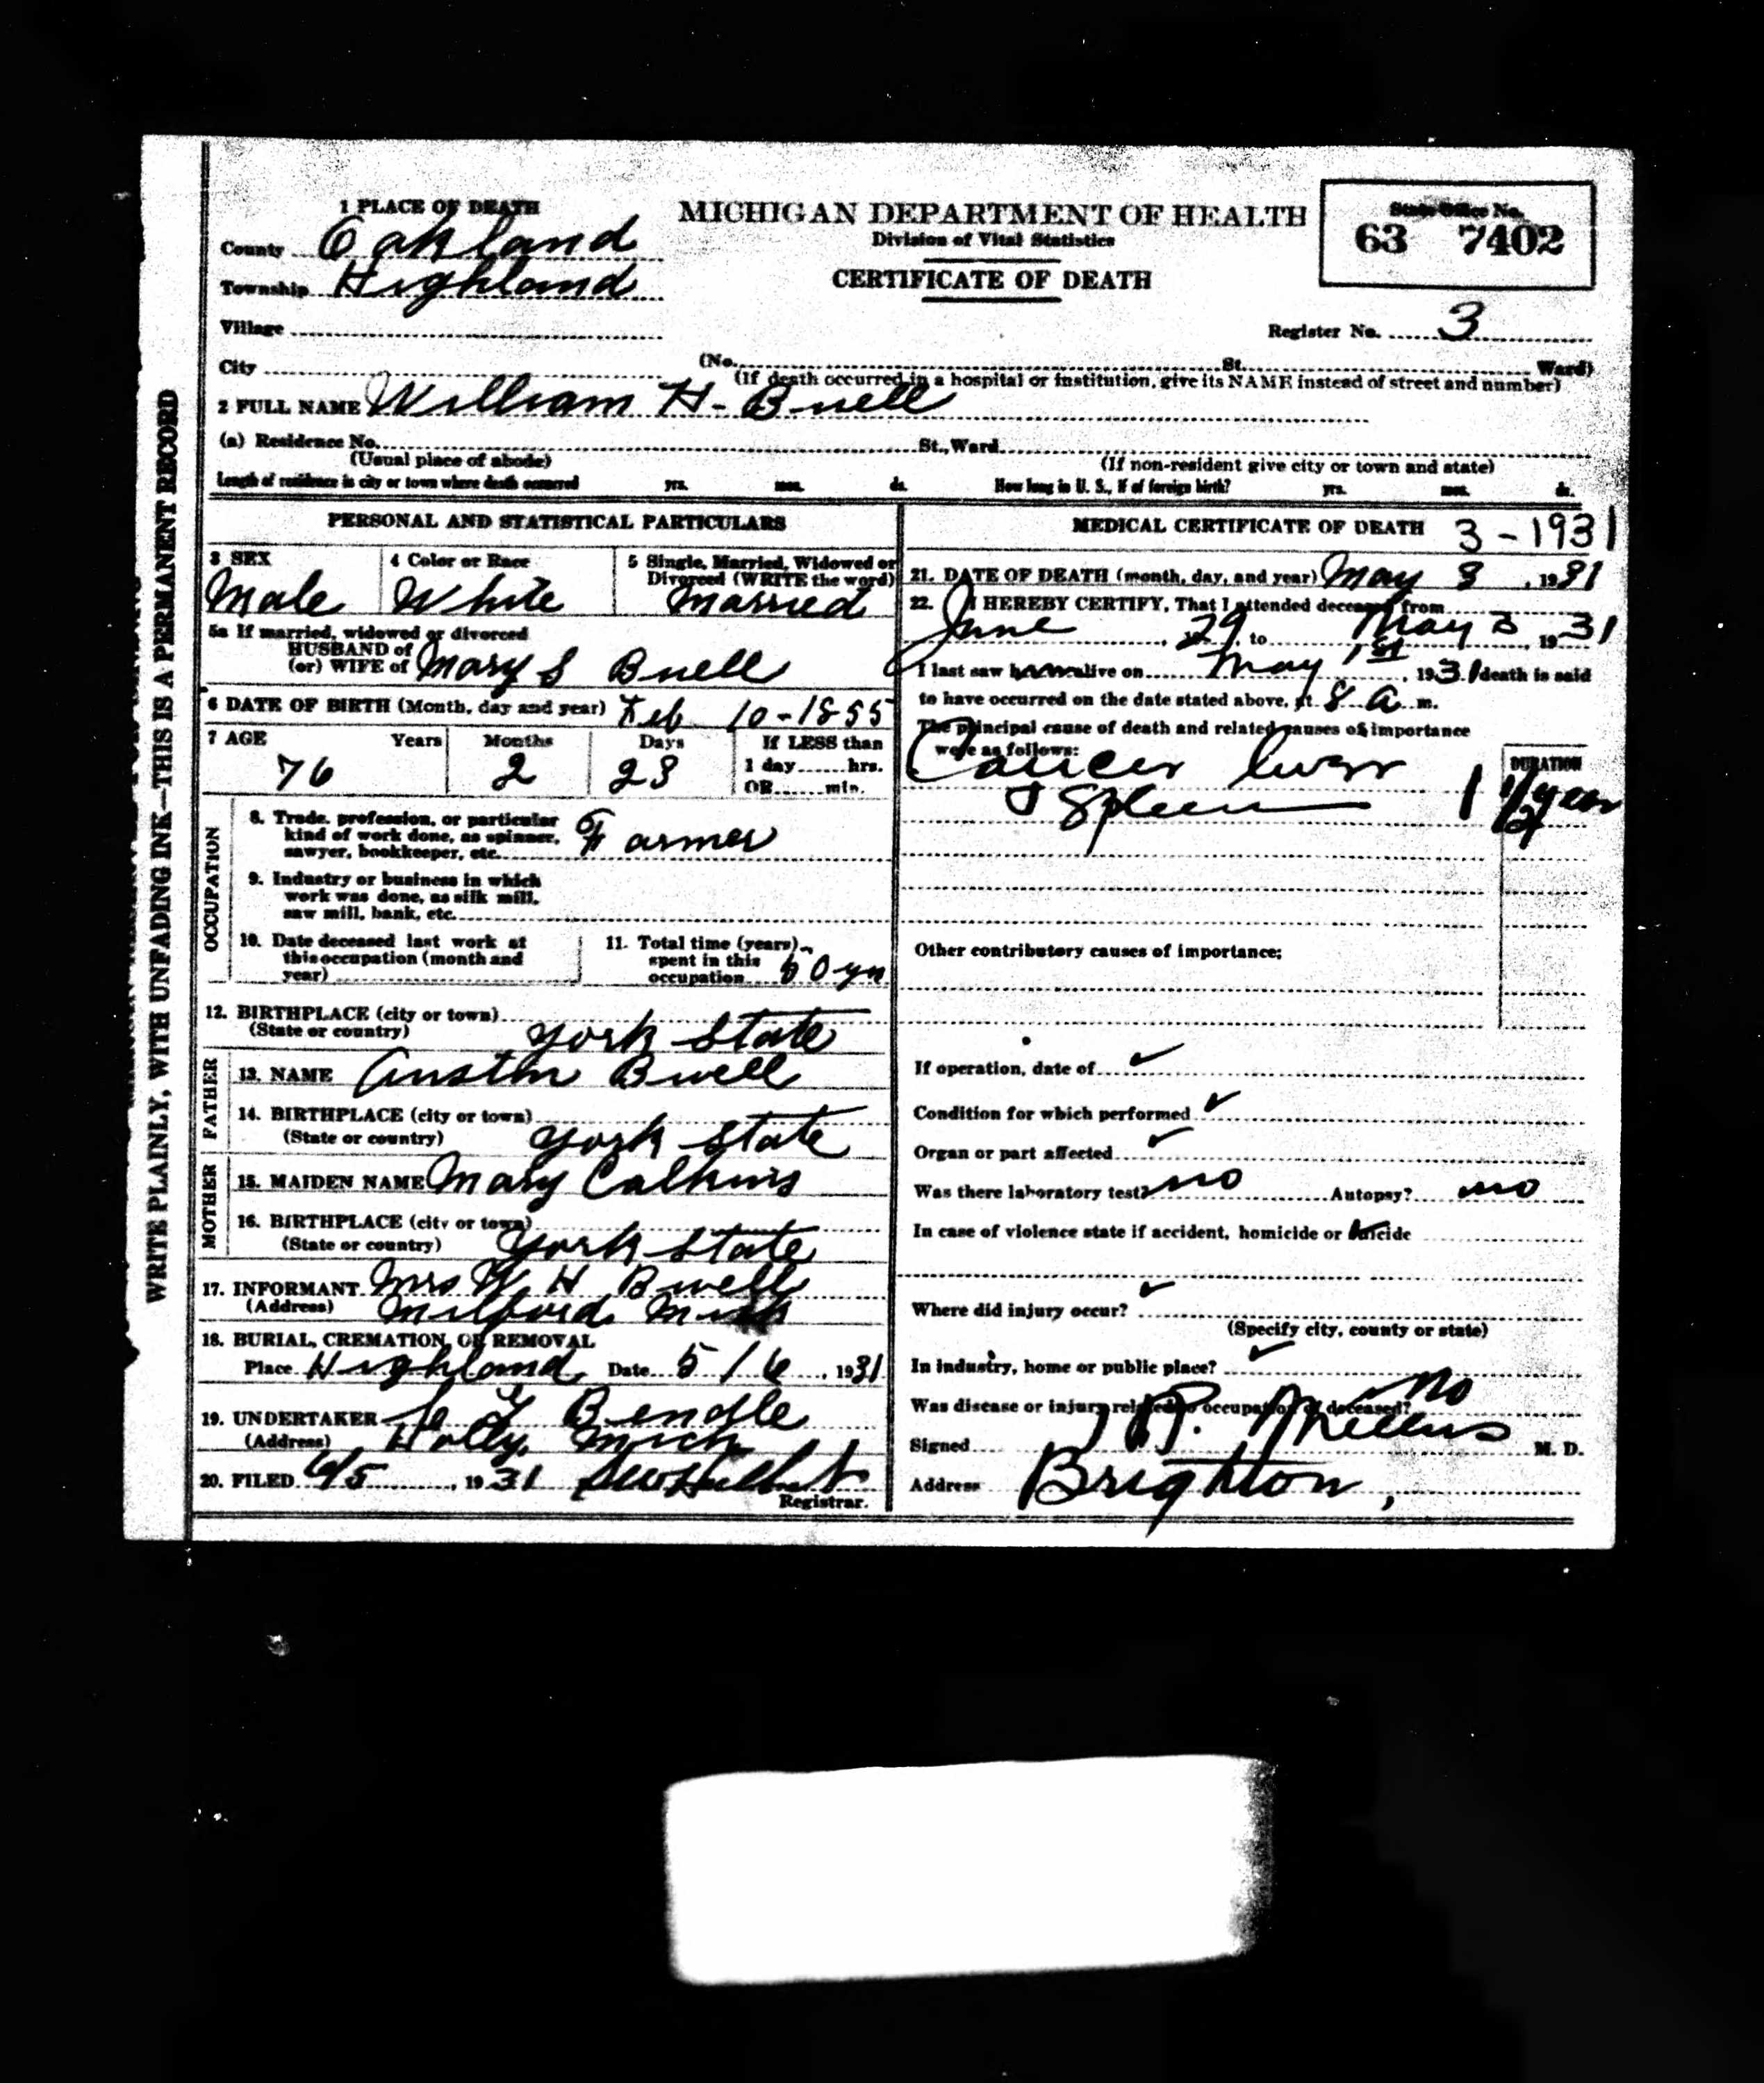 WRITE PLAINLY, WITH UNFADING INK—THIS IS A PERMANENT RECORD
1 PLACE OF DEATH
County Oakland
Township Highland
Village
City
MICHIGAN DEPARTMENT OF HEALTH
Division of Vital Statistics
CERTIFICATE OF DEATH
State Office No.
63 7402
Register No. 3
(No. St. Ward)
(If death occurred in a hospital or institution, give its NAME instead of street and number)
2 FULL NAME William H. Buell
(a) Residence No. St., Ward
(Usual place of abode) (If non-resident give city or town and state)
Length of residence in city or town where death occurred yrs. mos. ds. How long in U. S., if of foreign birth? yrs. mos. ds.
PERSONAL AND STATISTICAL PARTICULARS
3 SEX
Male
4 Color or Race
White
5 Single, Married, Widowed or
Divorced (WRITE the word)
Married
5a If married, widowed or divorced
HUSBAND of
(or) WIFE of Mary S Buell
6 DATE OF BIRTH (Month, day and year) Feb 10-1855
7 AGE Years Months Days If LESS than
76 2 23 1 day hrs.
OR min.
OCCUPATION
8. Trade, profession, or particular
kind of work done, as spinner,
sawyer, bookkeeper, etc. Farmer
9. Industry or business in which
work was done, as silk mill,
saw mill, bank, etc.
10. Date deceased last work at
this occupation (month and
year)
11. Total time (years)
spent in this
occupation 50 yrs
12. BIRTHPLACE (city or town)
(State or country) York State
FATHER
13. NAME Austin Buell
14. BIRTHPLACE (city or town)
(State or country) York State
MOTHER
15. MAIDEN NAME Mary Calkins
16. BIRTHPLACE (city or town)
(State or country) York State
17. INFORMANT Mrs W. H Buell
(Address) Milford Mich
18. BURIAL, CREMATION, OR REMOVAL
Place Highland Date 5/6, 1931
19. UNDERTAKER Bendle
(Address) Holly, Mich
20. FILED 6/5, 1931
Registrar.
MEDICAL CERTIFICATE OF DEATH 3-1931
21. DATE OF DEATH (month, day, and year) May 3, 1931
22. I HEREBY CERTIFY, That I attended deceased from
June, 29, to May 3 1931
I last saw him alive on May 1st, 1931 death is said
to have occurred on the date stated above, at 8 a m.
The principal cause of death and related causes of importance
were as follows:
DURATION
Cancer liver
& Spleen 1 1/2 year
Other contributory causes of importance:
If operation, date of ✓
Condition for which performed ✓
Organ or part affected ✓
Was there laboratory test? no Autopsy? no
In case of violence state if accident, homicide or suicide
Where did injury occur? ✓
(Specify city, county or state)
In industry, home or public place? ✓
Was disease or injury related to occupation of deceased? no
Signed M. D.
Address Brighton,